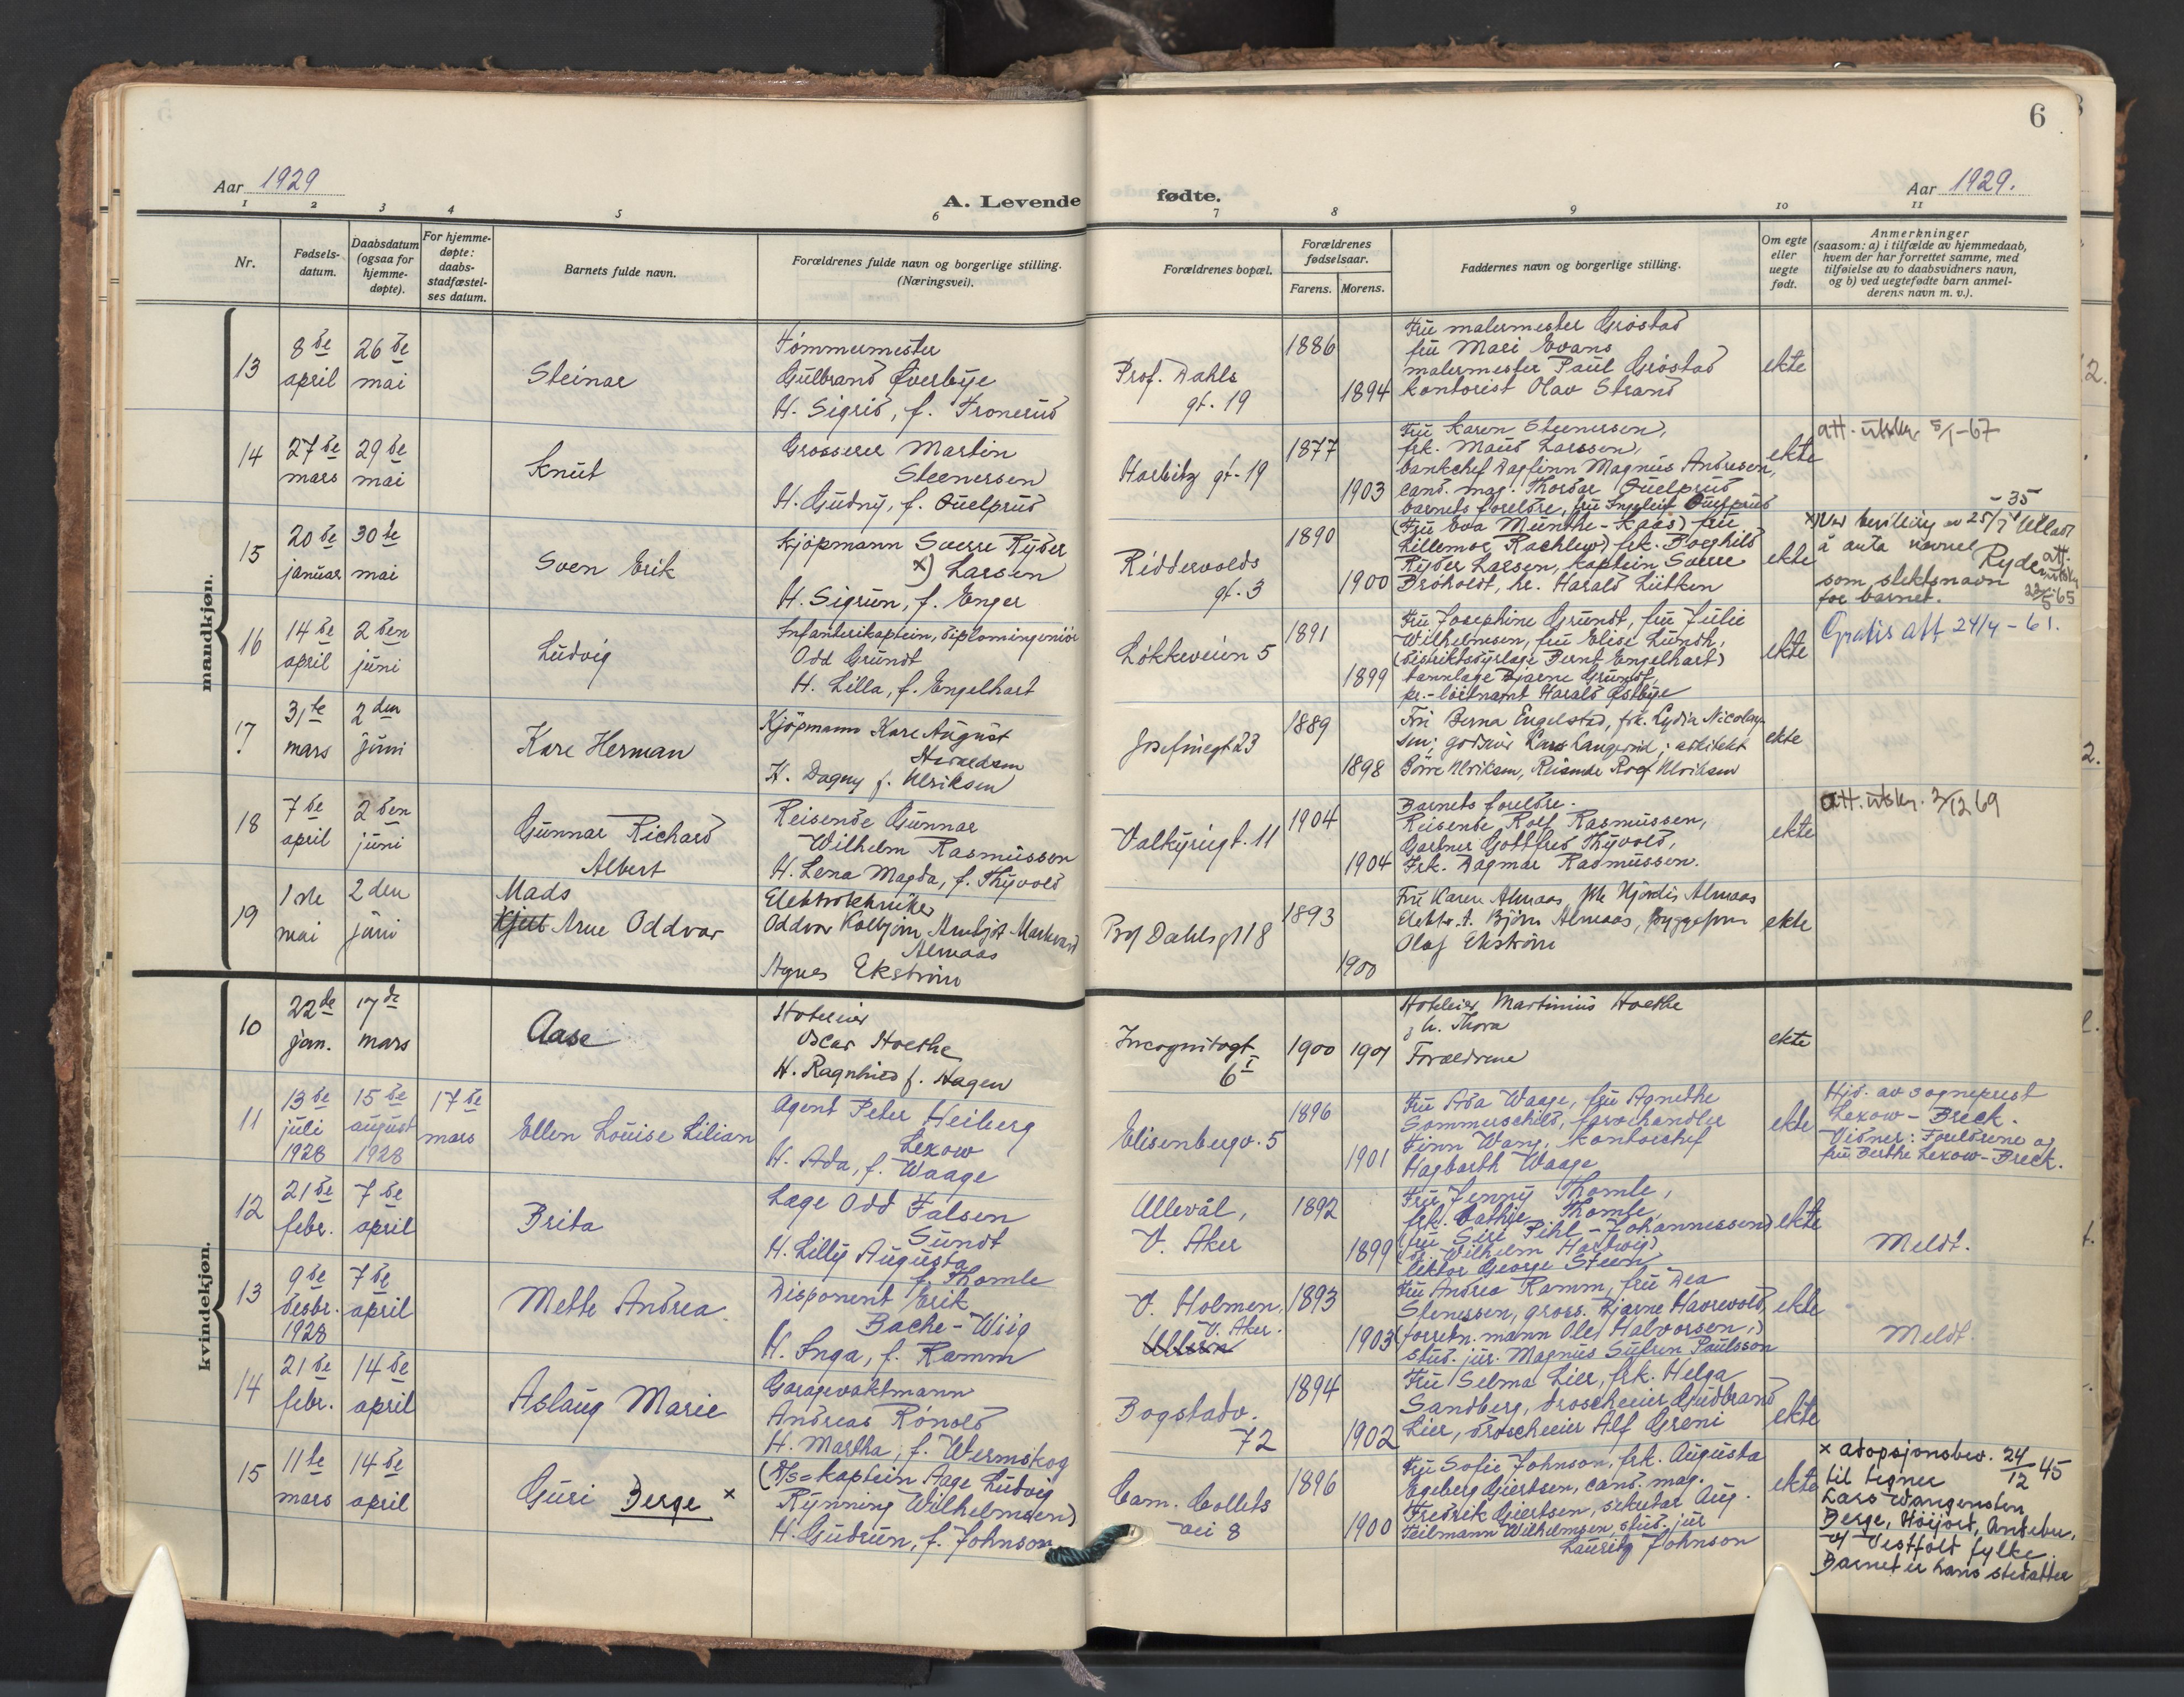 6
Aar 1929
A. Levende
fødte.
Aar 1929.
1 2 3 4 5 6 7 8 9 10 11
Nr.
Fødsels-
datum.
Daabsdatum
(ogsaa for
hjemme-
døpte).
For hjemme-
døpte:
daabs-
stadfæstel-
ses datum.
Barnets fulde navn.
Forældrenes fulde navn og borgerlige stilling.
(Næringsvei).
Forældrenes bopæl.
Forældrenes
fødselsaar.
Farens. Morens.
Faddernes navn og borgerlige stilling.
Om egte
eller
uegte
født.
Anmerkninger
(saasom: a) i tilfælde av hjemmedaab,
hvem der har forrettet samme, med
tilføielse av to daabsvidners navn,
og b) ved uegtefødte barn anmel-
derens navn m. v.).
mandkjøn.
13
8de
april
26de
mai
Steinar
Tömmermester
Gulbrand Øverbye
H. Sigrid, f. Tronerud
Prof. Dahls
gt. 19
1886
1894
Fru malermester Gröstad
fru Mari Evans
malermester Paul Gröstad
kontorist Olav Strand
ekte
14
27de
mars
29de
mai
Knut
Grosserer Martin
Steenersen
H. Gudny, f. Quelprud
Harbitz gt. 19
1877
1903
Fru Karen Steenersen,
frk. Maud Larssen,
bankchef Dagfinn Magnus Andresen,
cand. mag. Thordar Quelprud
barnets foreldre, fru Ingeleif Quelprud
ekte
att. utskr. 5/1-67
15
20de
januar
30te
mai
Sven Erik
Kjöpmann Sverre Ryder
x) Larsen
H. Sigrun, f. Enger
Riddervolds
gt. 3
1890
1900
(Fru Eva Munthe-Kaas) fru
Lillemor Rachlew) frk. Borghild
Ryder Larsen, kaptein Sverre
Broholdt, hr. Harald Lütken
ekte
x) Ved bevilling av 25/7 -35 tillatt
å anta navnet Ryder
som slektsnavn
for barnet.
att.
utskr.
22/5 65
16
14de
april
2den
juni
Ludvig
Infanterikaptein, diplomingeniör
Odd Grundt
H. Lilla, f. Engelhart
Lökkeveien 5
1891
1899
Fru Josephine Grundt, fru Julie
Wilhelmsen, fru Elise Lundh,
(distriktsdyrlæge Bernt Engelhart)
tannlæge Bjarne Grundt,
pr.-löitnant Harald Østbye
ekte
Gratis att 24/4 - 61.
17
31te
mars
2den
juni
Kåre Herman
Kjöpmann Kåre August
Haraldsen
H. Dagny f. Ulriksen
Josefinegt 23
1889
1898
Fru Berna Engelstad, frk. Lydia Nicolay-
sen; godseier Lars Langerud; arkitekt
Börre Ulriksen, Reisende Rolf Ulriksen
ekte
18
7de
april
2den
juni
Gunnar Richard
Albert
Reisende Gunnar
Wilhelm Rasmussen
H. Lena Magda, f. Thyvold
Valkyriegt. 11
1904
1904
Barnets foreldre.
Reisende Rolf Rasmussen,
Gartner Gottfred Thyvold,
Frk. Dagmar Rasmussen.
ekte
att. utskr. 2/12 69
19
1ste
mai
2den
juni
Mads
Kjell Arne Oddvar
Elektrotekniker
Oddvar Kolbjörn Arnljot Markvard
Almaas
Agnes Ekström
Prof Dahls gt 18
1893
1900
Fru Karen Almaas, frk Hjördis Almaas
Elektr. t. Björn Almaas, Byggeform
Olaf Ekström
ekte
kvindekjøn.
10
22de
jan.
17de
mars
Aase
Hoteleier
Oscar Hoelke
H. Ragnhild f. Hagen
Incognitogt
6 I
1900
1901
Hoteleier Martinius Hoelke
g h. Thora
Foreldrene
ekte
11
13de
juli
1928
15de
august
1928
17de
mars
Ellen Louise Lilian
Agent Peter Heiberg
Lexow
H. Ada, f. Waage
Elisenbergv. 5
1896
1901
Fru Ada Waage, fru Agnethe
Sommerschild, farvehandler
Finn Wang, kontorchef
Hagbarth Waage
ekte
Hjd. av sogneprest
Lexow-Breck.
Vidner: Foreldrene og
fru Berthe Lexow-Breck.
12
21de
febr.
7de
april
Brita
Læge Odd Falsen
Sundt
H. Lilly Augusta
f. Thomle
Ullevål,
V. Aker
1892
1899
Fru Jenny Thomle,
frk. Cathje Thomle,
(fru Siri Pihl-Johannessen)
(dr. Wilhelm Hartwig)
lektor George Steen
ekte
Meldt.
13
9de
desbr.
1928
7de
april
Mette Andrea
Disponent Erik
Bache-Wiig
H. Inga, f. Ramm
V. Holmen,
V. Aker.
Ullern
1893
1903
Fru Andrea Ramm, fru Dea
Stenersen, gross. Bjarne Haarevold,
(forretn. mann Olef Halvorsen,)
stud. jur. Magnus Sylvin Paulsson
ekte
Meldt.
14
21de
febr.
14de
april
Aslaug Marie
Garagevaktmann
Andreas Rönold
H. Martha, f. Wermskog
Bogstadv.
72
1894
1902
Fru Selma Lier, frk. Helga
Sandberg, droscheeier Gudbrand
Lier, droscheeier Alf Greni
ekte
15
11te
mars
14de
april
Guri Berge x
(D/S-kaptein Aage Ludvig
Rynning Wilhelmsen)
H. Gudrun, f. Johnson
Cam. Colletts
vei 8
1896
1900
Fru Sofie Johnson, frk. Augusta
Egeberg Giertsen, cand. mag.
Fredrik Giertsen, sekretær Aug.
Feilmann Wilhelmsen, stud. jur
Lauritz Johnson
ekte
x Adopsjonsbev. 24/12 45
til tegner
Lars Wangensten
Berge, Höijord, Andebu,
Vestfold fylke.
Barnet er hans stedatter